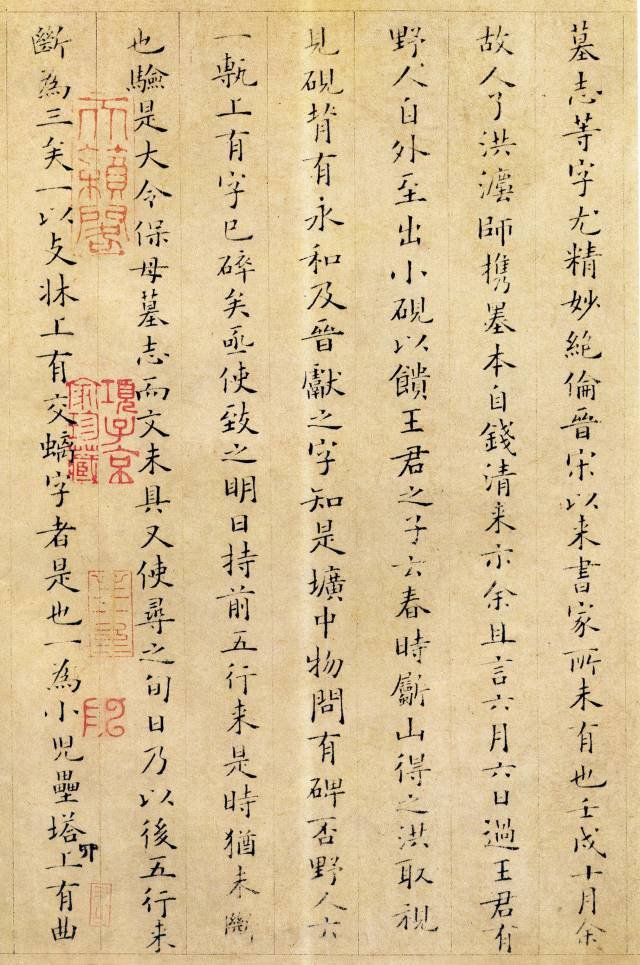 墓志等字尤精妙絶倫晉宋以来書家所未有也壬戌十月余
故人了洪瀍師携墨本自錢清来示余且言六月六日過王君有
野人自外至出小硯以饋王君之子云春時斸山得之洪取視
見硯背有永和及晉獻之字知是壙中物問有碑否野人云
一甎上有字已碎矣亟使致之明日持前五行来是時猶未斷
也驗是大令保母墓志而文未具又使尋之旬日乃以後五行来
斷為三矣一以支牀上有交螭字者是也一為小兒壘塔上有曲
卯
天籟閣
項子京
家珍藏